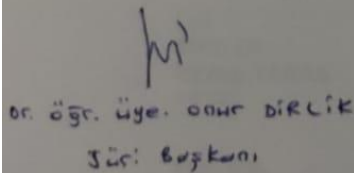 Dr. öğr. üye. onur DİRLİK
Jüri Başkanı